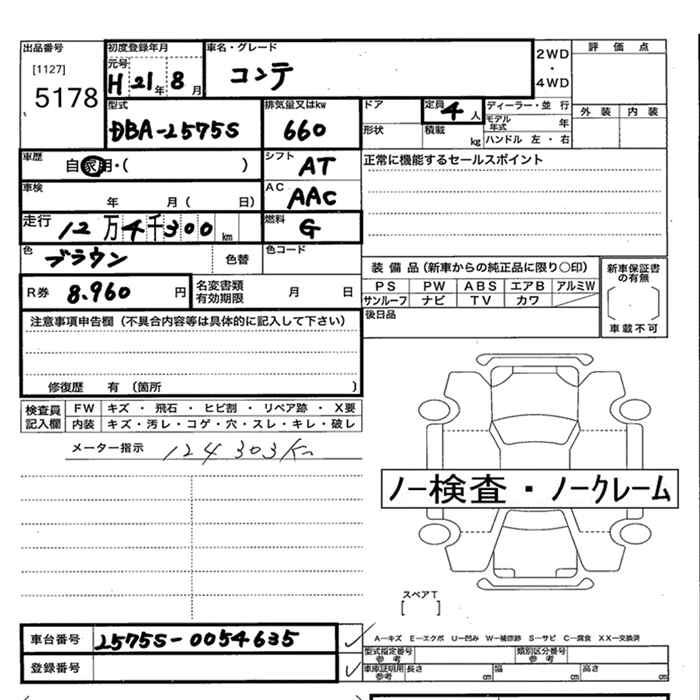 出品番号 初度登録年月 車名・グレード 2WD・4WD 評価点
[1127] 元号 H 21年 8月 コンテ
5178
型式 排気量又はkw ドア 定員 4人 ディーラー・並行 外装 内装
DBA-L575S 660 形状 積載 kg モデル年式 年
ハンドル 左・右
車歴 自家用・( ) シフト AT 正常に機能するセールスポイント
車検 年 月( 日) AC AAC
走行 12万4千300km 燃料 G
色 ブラウン 色替 色コード
装備品(新車からの純正品に限り○印) 新車保証書の有無
R券 8.960円 名変書類有効期限 月 日 PS PW ABS エアB アルミW
サンルーフ ナビ TV カワ
注意事項申告欄(不具合内容等は具体的に記入して下さい) 後日品 車載不可
修復歴 有(箇所 )
検査員記入欄 FW キズ・飛石・ヒビ割・リペア跡・X要
内装 キズ・汚レ・コゲ・穴・スレ・キレ・破レ
メーター指示 124303Km
ノー検査・ノークレーム
スペアT
[ ]
車台番号 L575S-0054635 A-キズ E-エクボ U-凹み W-補修跡 S-サビ C-腐食 XX-交換済
型式指定番号参考 類別区分番号参考
登録番号 車庫証明用参考 長さ cm 幅 cm 高さ cm